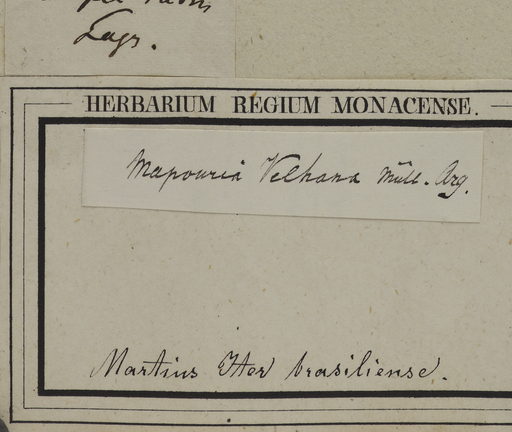 Lagr.
HERBARIUM REGIUM MONACENSE.
Mapouria Velhana Müll. Arg.
Martius Iter brasiliense.